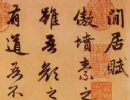 閒居賦
傲墳素之
雖吾顏之
有道吾不